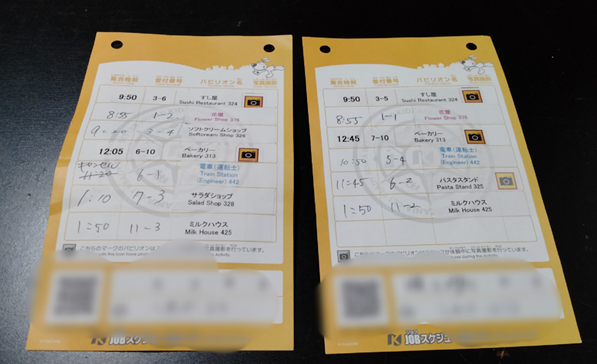 集合時刻 受付番号 パビリオン名 写真撮影
9:50 3-6 すし屋
Sushi Restaurant 324
8:55 1-3 花屋
Flower Shop 376
ソフトクリームショップ
Softcream Shop 326
12:05 6-10 ベーカリー
Bakery 313
キャンセル 電車(運転士)
11:20 6-1 Train Station
(Engineer) 442
1:10 7-3 サラダショップ
Salad Shop 328
1:50 11-3 ミルクハウス
Milk House 425
こちらのマークのパビリオンは
JOBスケジュ
集合時刻 受付番号 パビリオン名 写真撮影
9:50 3-5 すし屋
Sushi Restaurant 324
8:55 1-1 花屋
Flower Shop 376
12:45 7-10 ベーカリー
Bakery 313
10:50 5-4 電車(運転士)
Train Station
(Engineer) 442
11:45 6-2 パスタスタンド
Pasta Stand 325
1:50 11-2 ミルクハウス
Milk House 425
こちらのマークのパビリオン
写真撮影を行っています。
JOBスケジュ